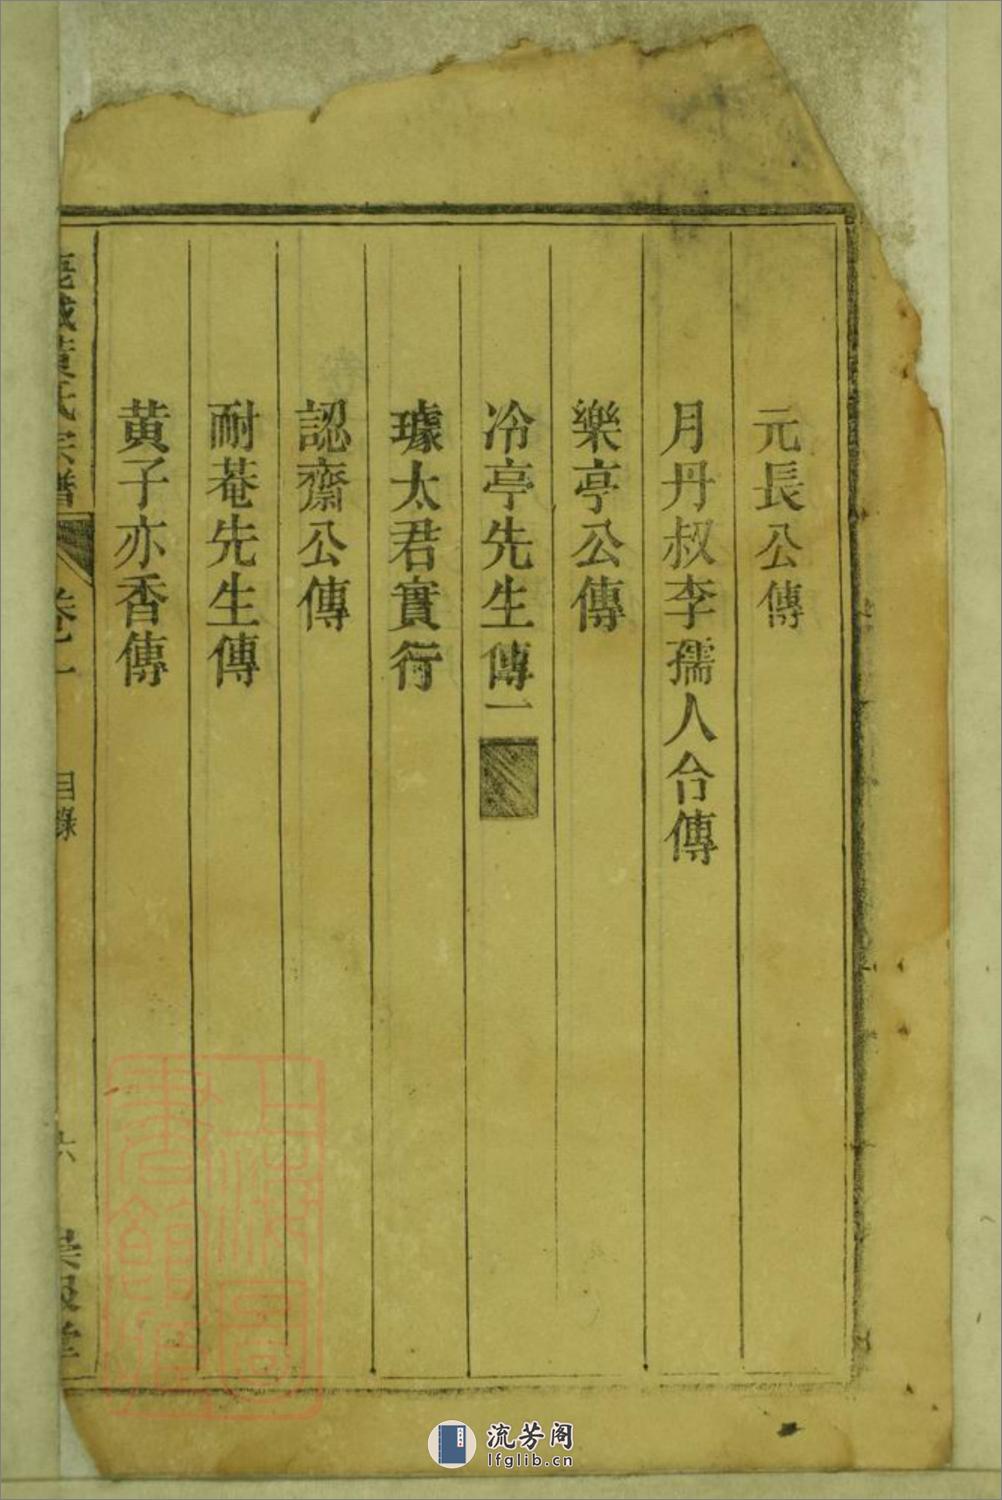 元長公傳
月丹叔李孺人合傳
樂亭公傳
冷亭先生傳一
璩太君實行
認齋公傳
耐菴先生傳
黄子亦香傳
城黄氏宗譜
卷一
目錄
六
上海圖書館藏
流芳阁
lfglib.cn